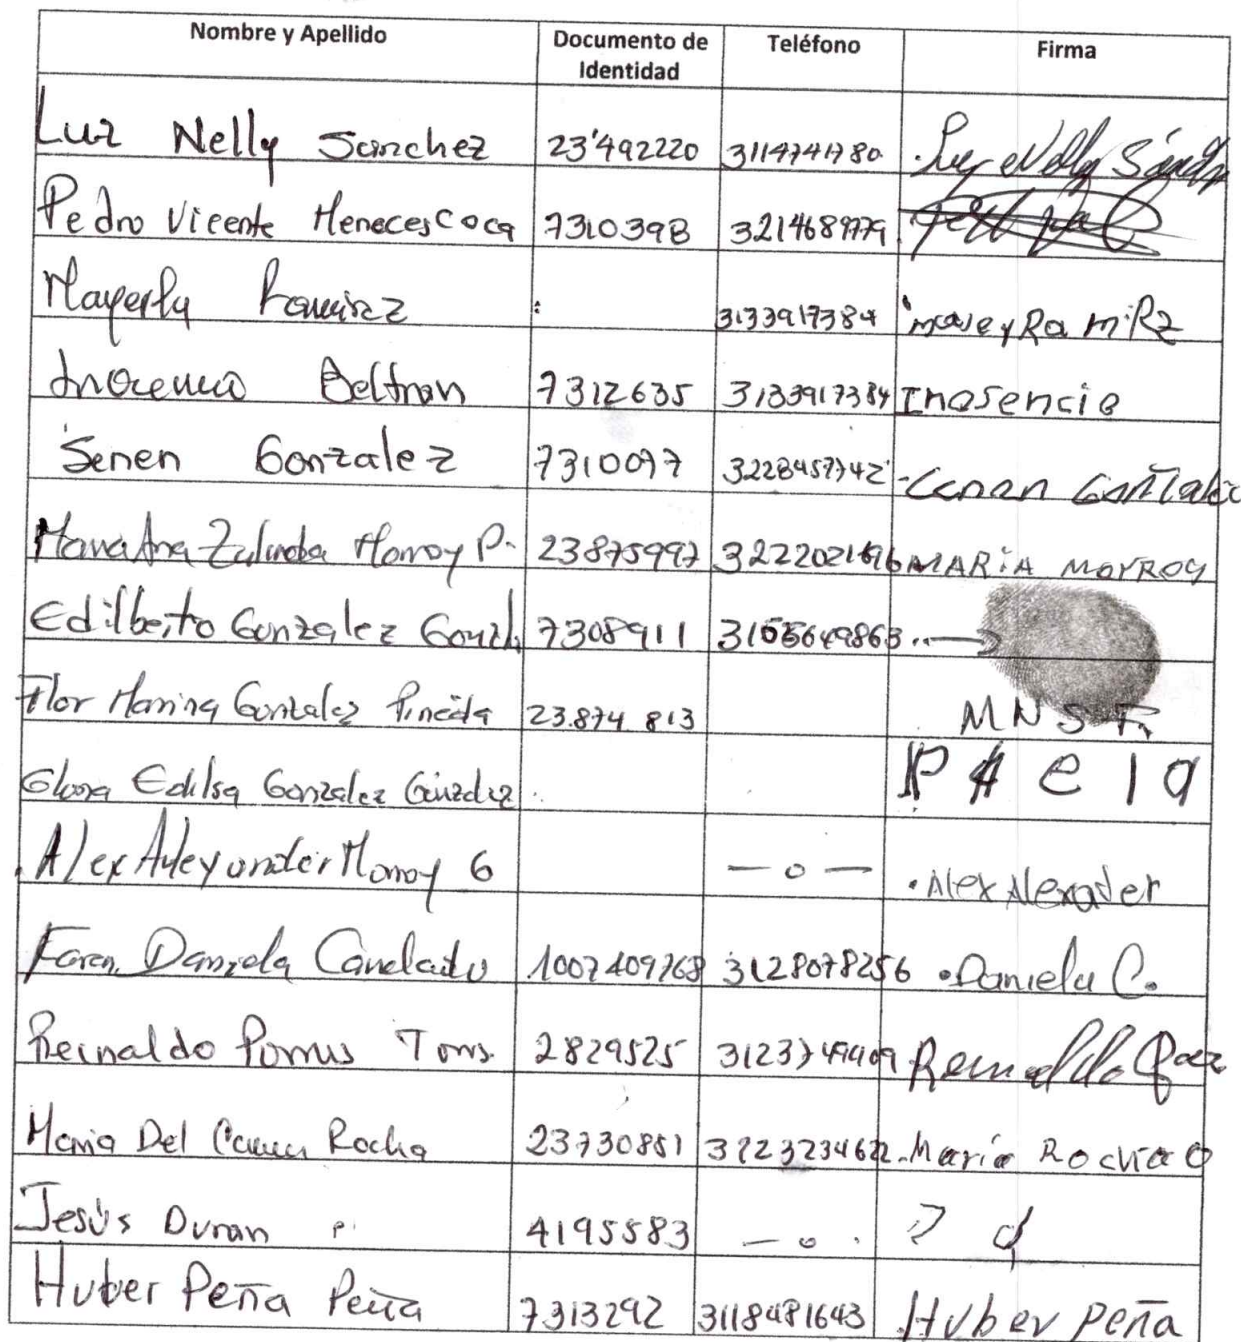 Nombre y Apellido Documento de Identidad Teléfono Firma
Luz Nelly Sanchez 23'492220 3114741780 Luz Nelly Sánch
Pedro Vicente Menecescoca 7310398 3214689979
Mayerly Ramirez 3133917384 mayeyRamiRz
Inocencio Beltran 7312635 3133917384 Inosencio
Senen Gonzalez 7310097 3228457742 Cenan Gonzalez
Maria Ana Zulinda Monroy P. 23875997 3222021696 MARIA MOYROY
Edilberto Gonzalez Gonzalez 7308911 3105649863
Flor Marina Gonzalez Pineda 23.874 813 MNSF
Gloria Edilsa Gonzalez Gonzalez
Alex Alexander Monroy G — o — Alex Alexader
Karen Daniela Candado 1007409768 3128078256 Daniela C.
Reinaldo Porras Torres 2829525 3123749409
Maria Del Carmen Rocha 23730851 3223234622 María Rocha O
Jesús Duran P. 4195583 — o .
Huber Peña Peña 7313292 3118481643 Huber peña